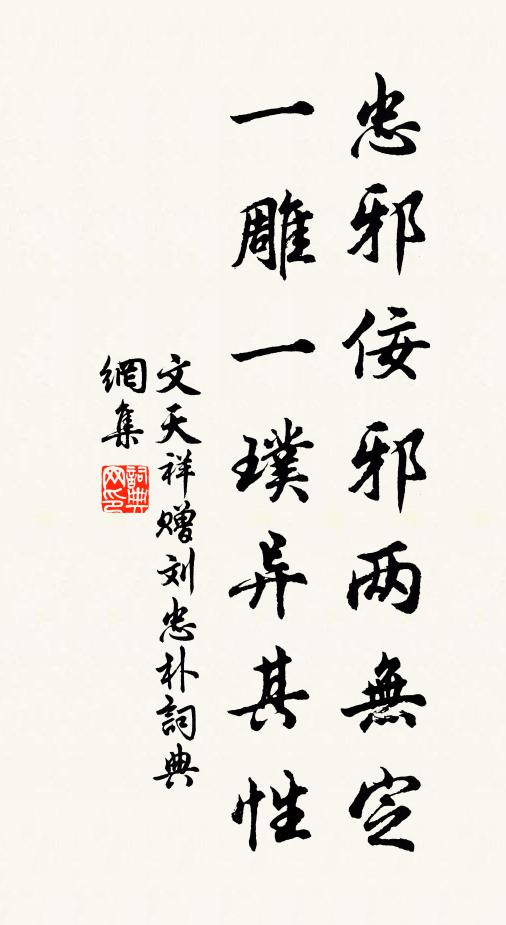 忠邪佞邪两無定
一雕一璞异其性
文天祥赠刘忠朴詞典
網集
詞典網印